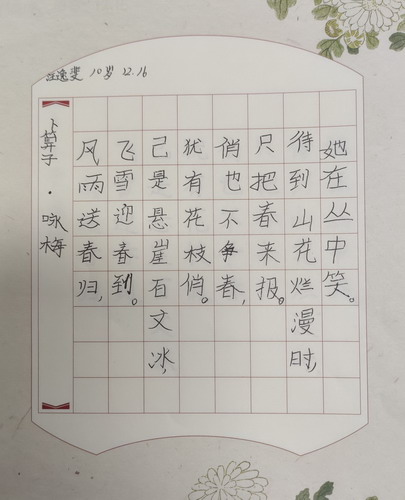 逸斐 10岁 12.16
卜算子·咏梅
风雨送春归,
飞雪迎春到。
己是悬崖石文冰,
犹有花枝俏。
俏也不争春,
只把春来报。
待到山花烂漫时,
她在丛中笑。